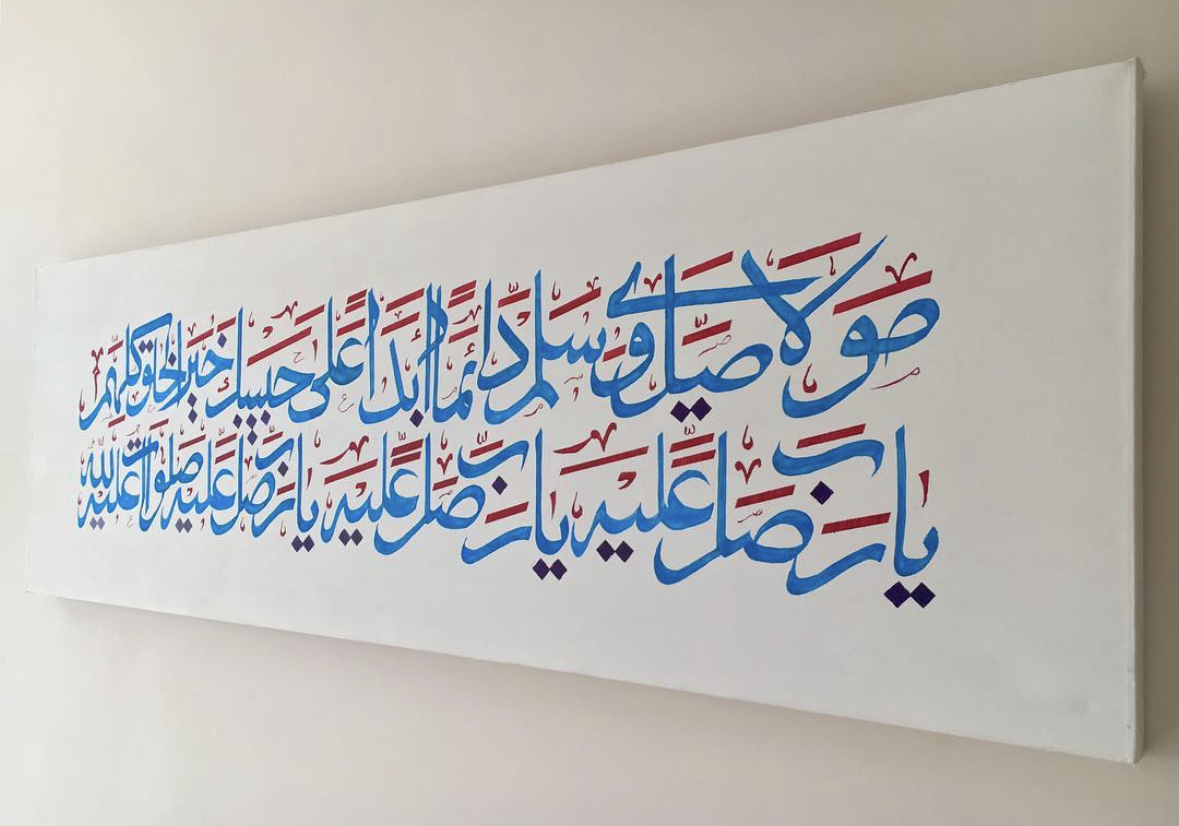 مَوْلَايَ صَلِّ وَسَلِّمْ دَائِمًا أَبَدًا عَلَى حَبِيبِكَ خَيْرِ الْخَلْقِ كُلِّهِمِ
يَا رَبِّ صَلِّ عَلَيْهِ يَا رَبِّ صَلِّ عَلَيْهِ يَا رَبِّ صَلِّ عَلَيْهِ صَلَوَاتُ اللّٰهِ عَلَيْهِ